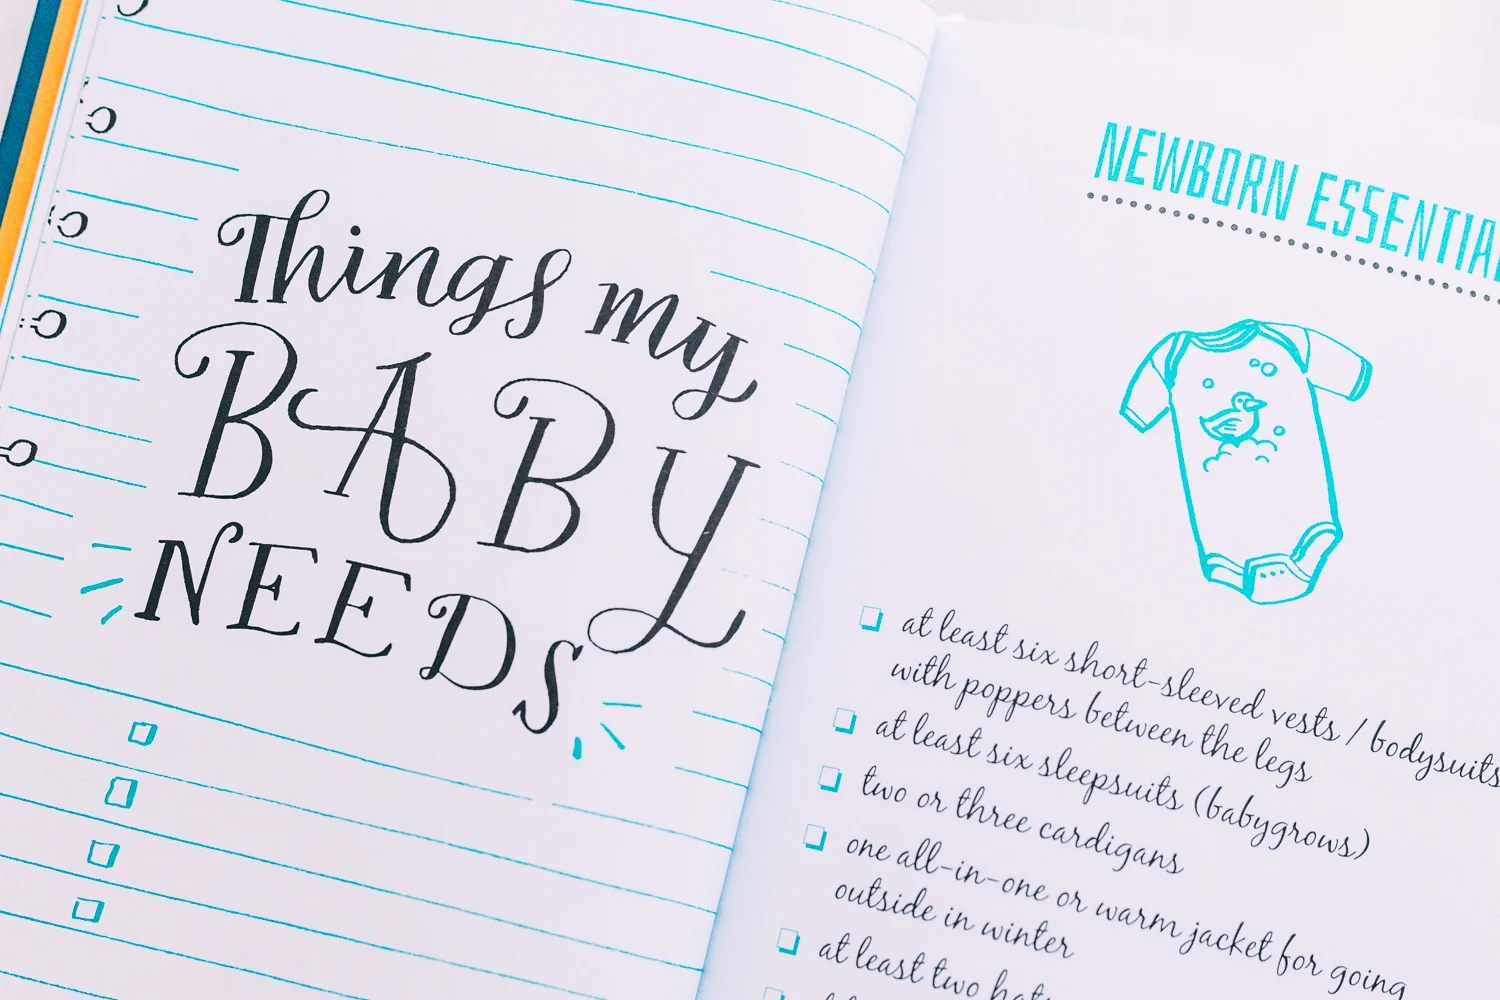 Things my
BABY
NEEDS
NEWBORN
at least six short-sleeved vests / bodysuits
with poppers between the legs
at least six sleepsuits (babygrows)
two or three cardigans
one all-in-one or warm jacket for going
outside in winter
at least two